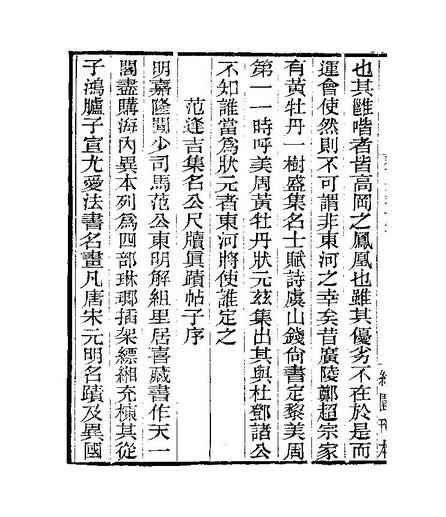 也其雝喈者皆高岡之鳳凰也雖其優劣不在於是而
運會使然則不可謂非東河之幸矣昔廣陵鄭超宗家
有黃牡丹一樹盛集名士賦詩虞山錢尙書定黎美周
第一一時呼美周黃牡丹狀元玆集出其與杜鄧諸公
不知誰當爲狀元者東河將使誰定之
范逢吉集名公尺牘眞蹟帖子序
明嘉隆間少司馬范公東明解組里居喜藏書作天一
閣盡購海內異本列爲四部琳瑯插架縹緗充棟其從
子鴻臚子宣尤愛法書名畫凡唐宋元明名蹟及異國
園刊本